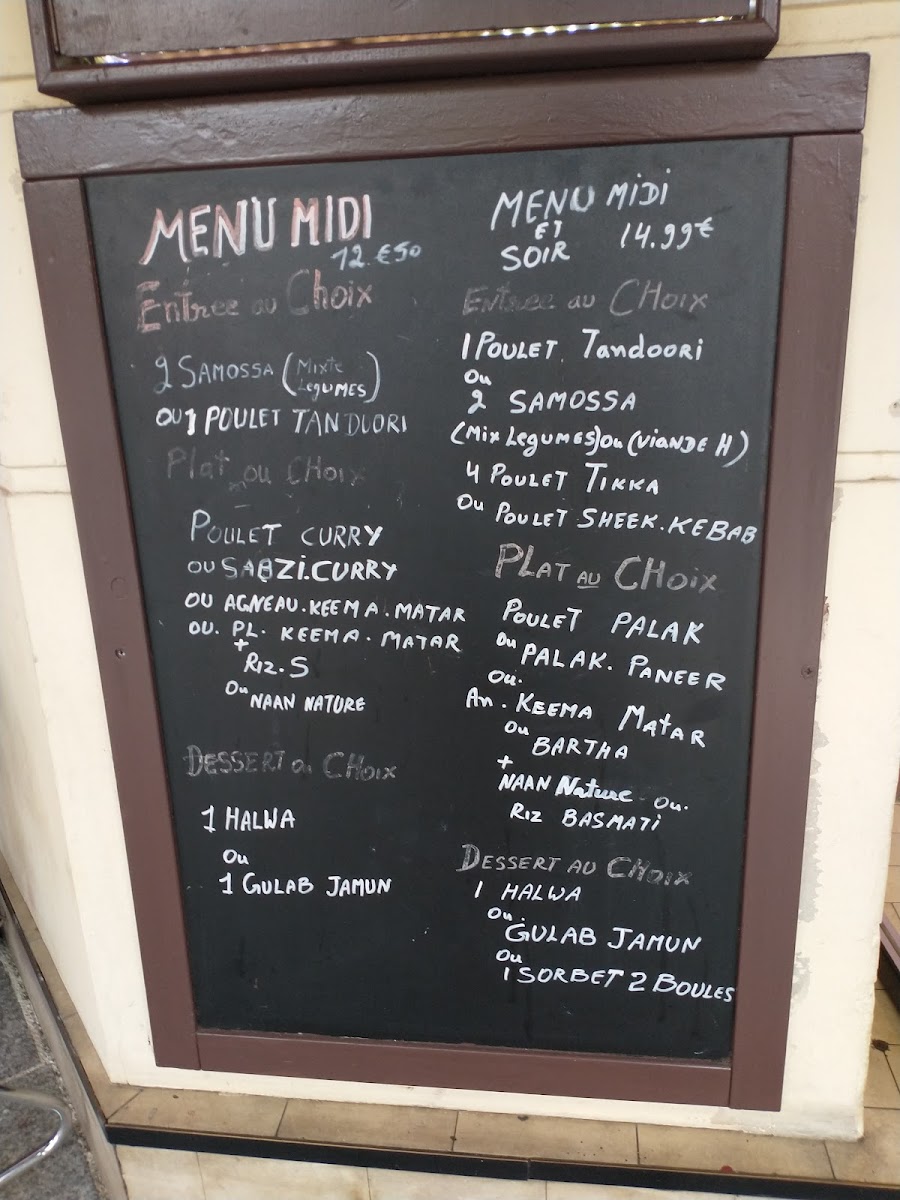 MENU MIDI
12.€50
Entree au Choix
2 SAMOSSA (Mixte Legumes)
OU 1 POULET TANDUORI
Plat ou CHoix
POULET CURRY
OU SABZI.CURRY
OU AGNEAU.KEEMA.MATAR
OU. PL. KEEMA. MATAR
+
RiZ.S
Ou NAAN NATURE
DESSERT ou CHoix
1 HALWA
Ou
1 GULAB JAMUN
MENU MiDi
ET
SOIR
14.99€
Entree au CHoix
1 POULET. Tandoori
Ou
2 SAMOSSA
(Mix Legumes) ou (ViANDE H)
4 POULET TIKKA
Ou POULET SHEEK.KEBAB
PLAT AU CHoix
POULET PALAK
Ou PALAK. PANEER
Ou.
An. KEEMA MatAR
Ou BARTHA
+
NAAN Nature ou.
RIZ BASMATi
DESSERT AU CHoix
1 HALWA
Ou.
GULAB JAMUN
Ou
1 SORBET 2 BOULES